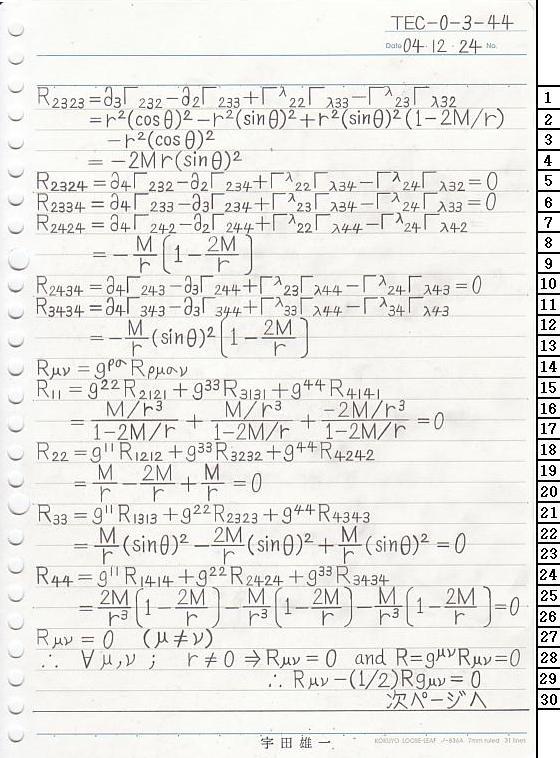 TEC-0-3-44
Date 04・12・24 No.
R₂₃₂₃=∂₃Γ₂₃₂−∂₂Γ₂₃₃+Γ^λ₂₂Γ_λ₃₃−Γ^λ₂₃Γ_λ₃₂ 1
=r²(cosθ)²−r²(sinθ)²+r²(sinθ)²(1−2M/r) 2
−r²(cosθ)² 3
=−2Mr(sinθ)² 4
R₂₃₂₄=∂₄Γ₂₃₂−∂₂Γ₂₃₄+Γ^λ₂₂Γ_λ₃₄−Γ^λ₂₄Γ_λ₃₂=0 5
R₂₃₃₄=∂₄Γ₂₃₃−∂₃Γ₂₃₄+Γ^λ₂₃Γ_λ₃₄−Γ^λ₂₄Γ_λ₃₃=0 6
R₂₄₂₄=∂₄Γ₂₄₂−∂₂Γ₂₄₄+Γ^λ₂₂Γ_λ₄₄−Γ^λ₂₄Γ_λ₄₂ 7
=−M/r(1−2M/r) 8 9
R₂₄₃₄=∂₄Γ₂₄₃−∂₃Γ₂₄₄+Γ^λ₂₃Γ_λ₄₄−Γ^λ₂₄Γ_λ₄₃=0 10
R₃₄₃₄=∂₄Γ₃₄₃−∂₃Γ₃₄₄+Γ^λ₃₃Γ_λ₄₄−Γ^λ₃₄Γ_λ₄₃ 11
=−M/r(sinθ)²(1−2M/r) 12 13
R_μν=g^ρσR_ρμσν 14
R₁₁=g²²R₂₁₂₁+g³³R₃₁₃₁+g⁴⁴R₄₁₄₁ 15
=(M/r³)/(1−2M/r)+(M/r³)/(1−2M/r)+(−2M/r³)/(1−2M/r)=0 16 17
R₂₂=g¹¹R₁₂₁₂+g³³R₃₂₃₂+g⁴⁴R₄₂₄₂ 18
=M/r−2M/r+M/r=0 19 20
R₃₃=g¹¹R₁₃₁₃+g²²R₂₃₂₃+g⁴⁴R₄₃₄₃ 21
=M/r(sinθ)²−2M/r(sinθ)²+M/r(sinθ)²=0 22 23
R₄₄=g¹¹R₁₄₁₄+g²²R₂₄₂₄+g³³R₃₄₃₄ 24
=2M/r³(1−2M/r)−M/r³(1−2M/r)−M/r³(1−2M/r)=0 25 26
R_μν=0 (μ≠ν) 27
∴ ∀μ,ν; r≠0⇒R_μν=0 and R=g^μνR_μν=0 28
∴ R_μν−(1/2)Rg_μν=0 29
次ページへ 30
宇田雄一 KOKUYO LOOSE-LEAF ノ-836A 7mm ruled 31 lines